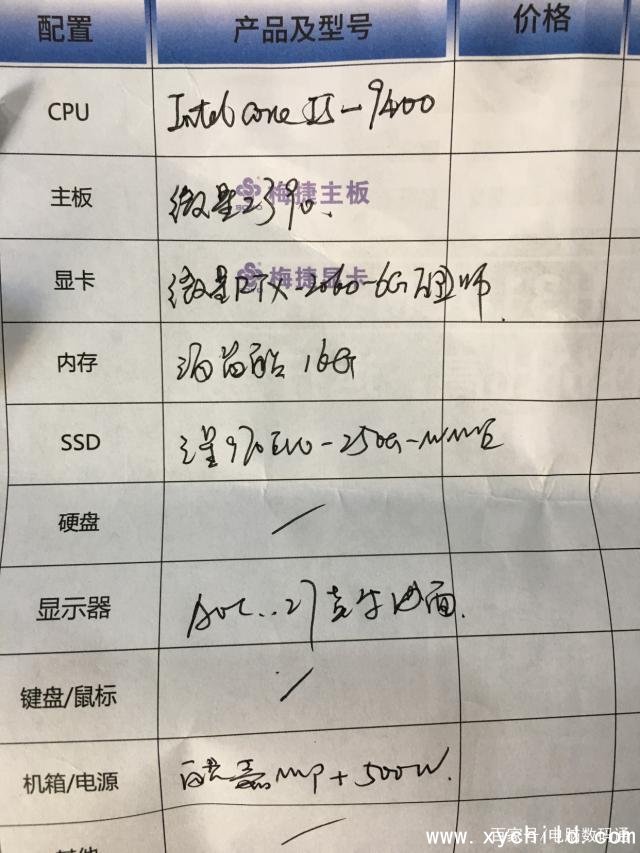 配置 产品及型号 价格
CPU Intel Core I5-9400
主板 微星Z390.
梅捷主板
显卡 微星RTX-2060-6G
梅捷显卡
内存 16G
SSD 三星970EVO-250G-NVME
硬盘 /
显示器 AOC..27 曲面.
键盘/鼠标 /
机箱/电源 +500W.
其他 /
百家号/电脑数码通
www.xychild.com